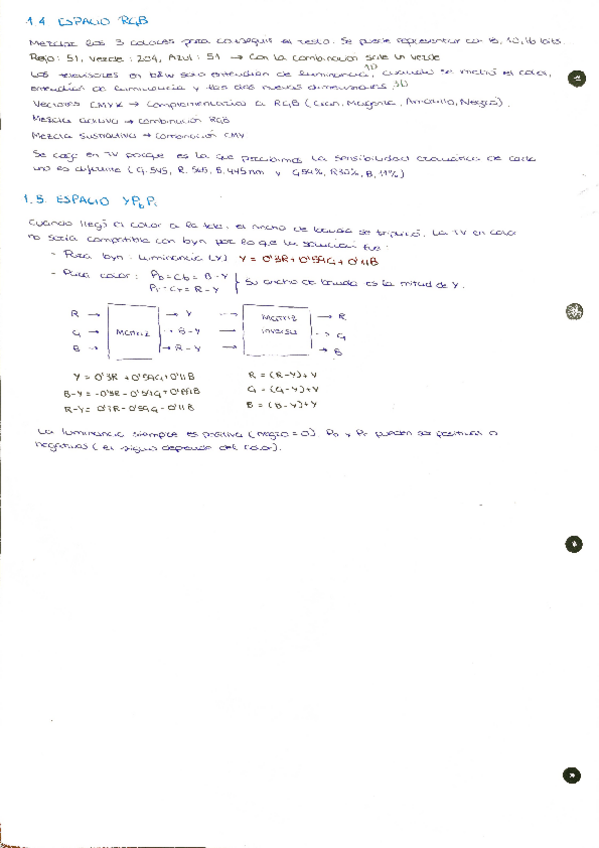 1.4 ESPACIO RGB
Mezclar los 3 colores para conseguir el resto. Se puede representar con 8, 10, 16 bits.
Rojo: 51, Verde: 204, Azul: 51 → Con la combinación sale un verde
Los televisores en b/w solo entendían de luminancia, cuando se metió el color,
entendían de luminancia y las dos nuevas dimensiones
Vectores CMYK → Complementarios a RGB (Cian, Magenta, Amarillo, Negro).
Mezcla aditiva → combinación RGB
Mezcla Sustractiva → combinación CMY
Se coge en TV porque es la que percibimos. La sensibilidad cromática de cada
uno es diferente (G.545, R.565, B.445nm y G59%, R30%, B.11%)
1.5. ESPACIO YPbPr
Cuando llegó el color a la tele, el ancho de banda se triplicó. La TV en color
no sería compatible con byn por lo que la solución fue:
- Para byn: Luminancia (Y) Y = 0'3R + 0'59G + 0'11B
- Para color: Pb = Cb = B-Y
Pr = Cr = R-Y
Su ancho de banda es la mitad de Y.
R → MATRIZ → Y → MATRIZ INVERSA → R
G → B-Y → G
B → R-Y → B
Y = 0'3R + 0'59G + 0'11B R = (R-Y)+Y
B-Y = -0'3R - 0'59G + 0'89B G = (G-Y)+Y
R-Y = 0'7R - 0'59G - 0'11B B = (B-Y)+Y
La luminancia siempre es positiva (negro = 0). Pb y Pr pueden ser positivas o
negativas (el signo depende del color).